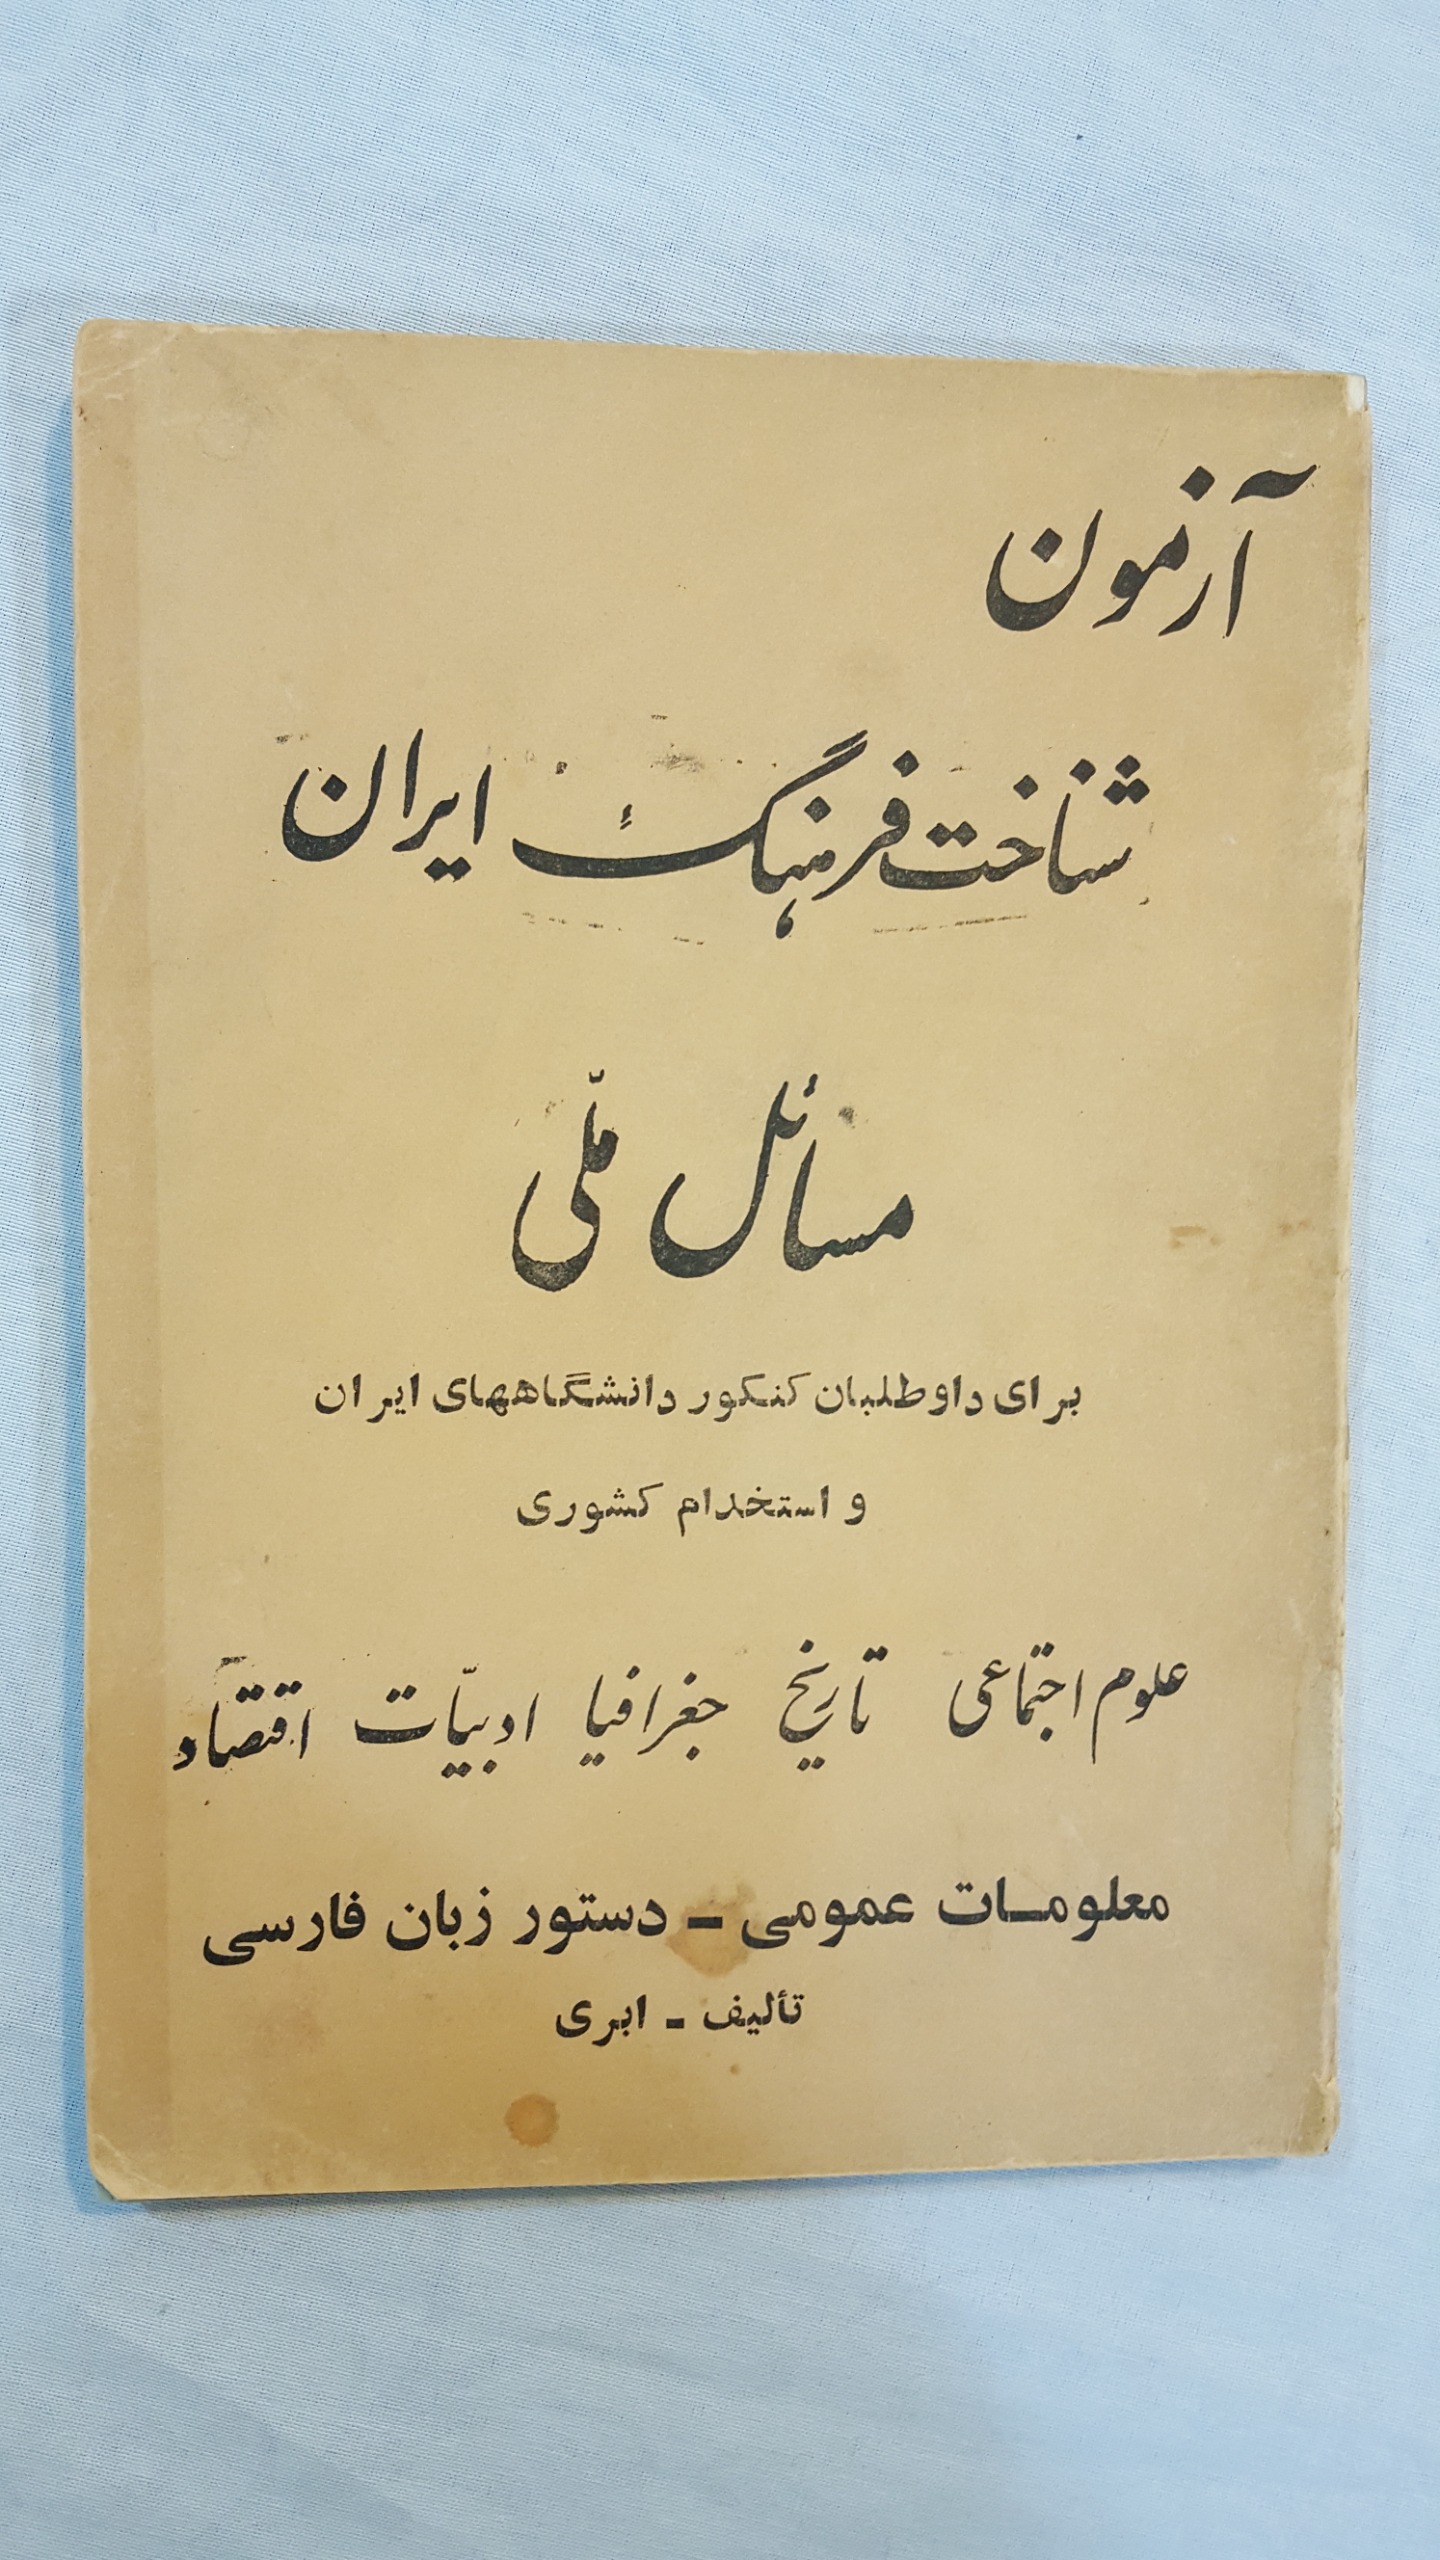 آزمون
شناخت فرهنگ ایران
مسائل ملّی
برای داوطلبان کنکور دانشگاههای ایران
و استخدام کشوری
علوم اجتماعی تاریخ جغرافیا ادبیّات اقتصاد
معلومات عمومی - دستور زبان فارسی
تألیف - ابری